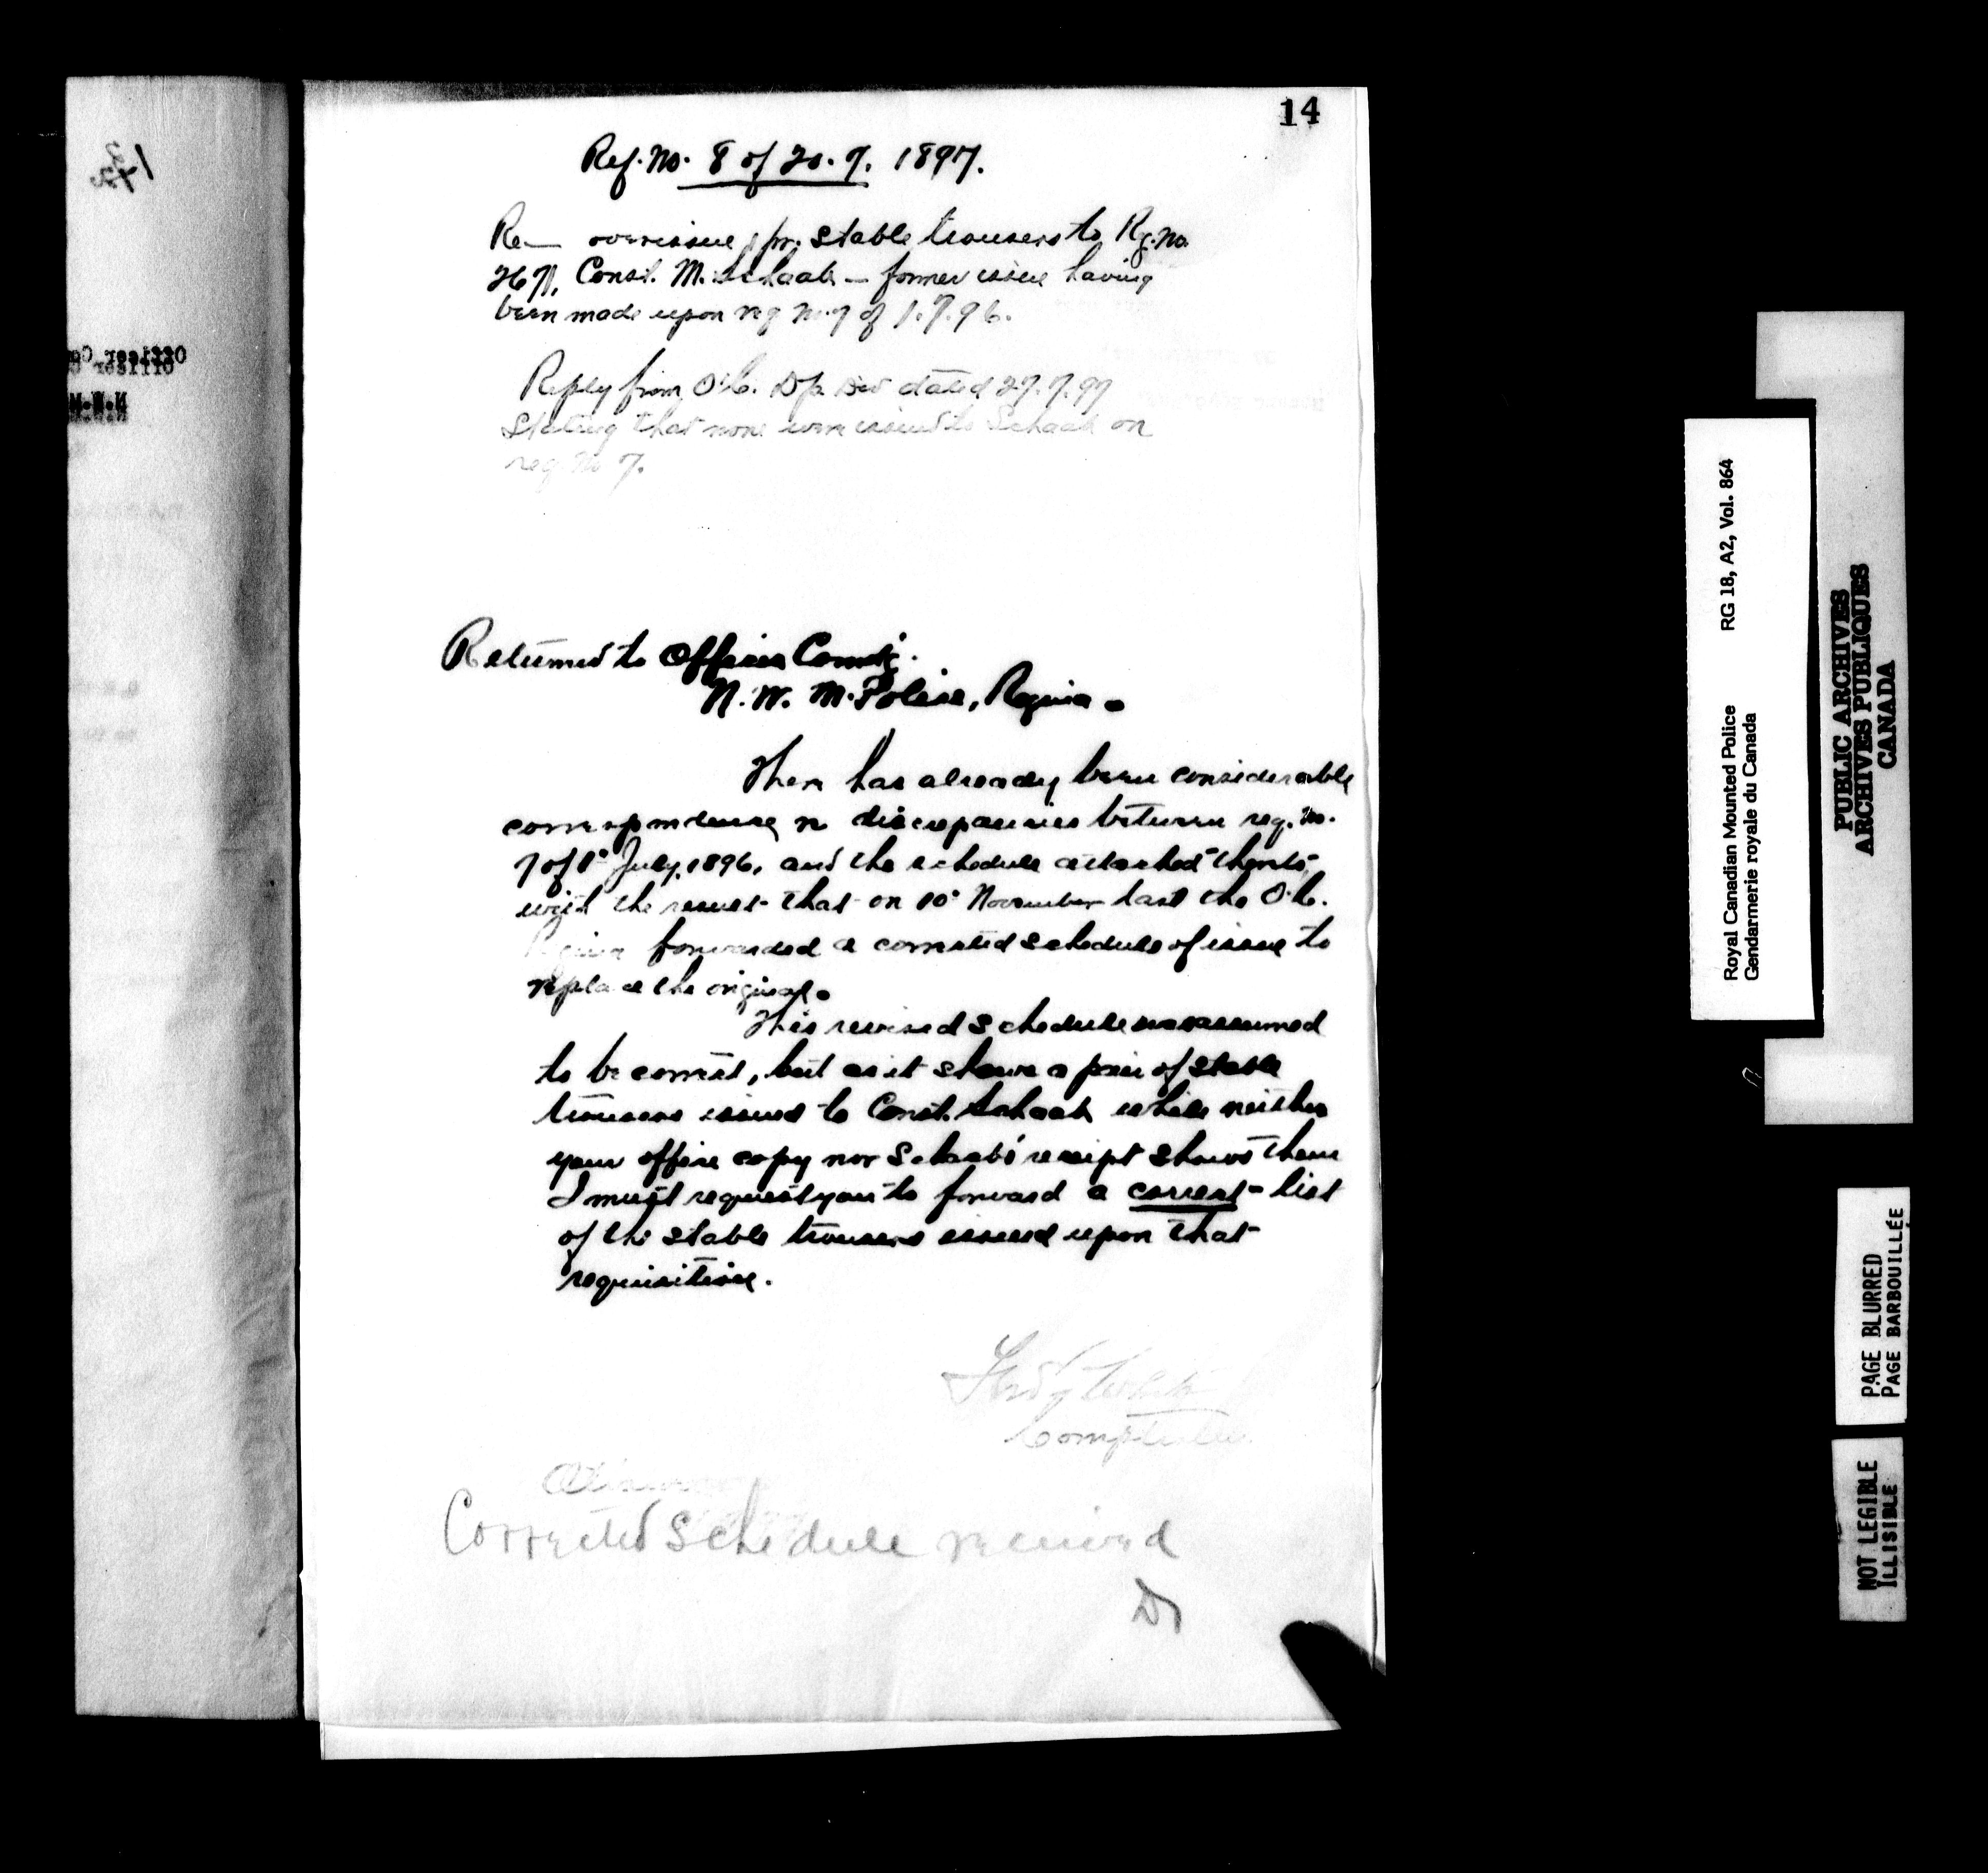 14
Ref. No. 8 of 20.7.1897.
Re— overissue 1 pr. stable trousers to Rg. No.
2671, Const. M. Schaab — former issue having
been made upon req No. 7 of 1.7.96.
Reply from O.C. Dp. Div dated 27.7.97
stating that none were issued to Schaab on
req. No 7.
Returned to Officer Comdg.
N. W. M. Police, Regina.
There has already been considerable
correspondence re discrepancies between req. No.
7 of 1st July, 1896, and the schedule attached thereto,
with the result that on 10th November last the O.C.
Regina forwarded a corrected schedule of issue to
replace the original.
This revised schedule was assumed
to be correct, but as it shows a pair of stable
trousers issued to Const. Schaab while neither
your office copy nor Schaab's receipt shows them
I must request you to forward a correct list
of the stable trousers issued upon that
requisition.
Fred White
Comptroller
Corrected Schedule received
Officer Co
N.W.M
Royal Canadian Mounted Police RG 18, A2, Vol. 864
Gendarmerie royale du Canada
PUBLIC ARCHIVES
ARCHIVES PUBLIQUES
CANADA
PAGE BLURRED
PAGE BARBOUILLÉE
NOT LEGIBLE
ILLISIBLE